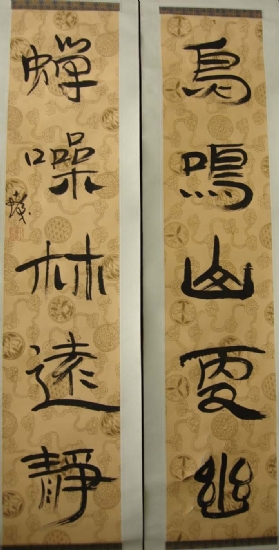 鳥鳴山更幽
蟬噪林遠靜